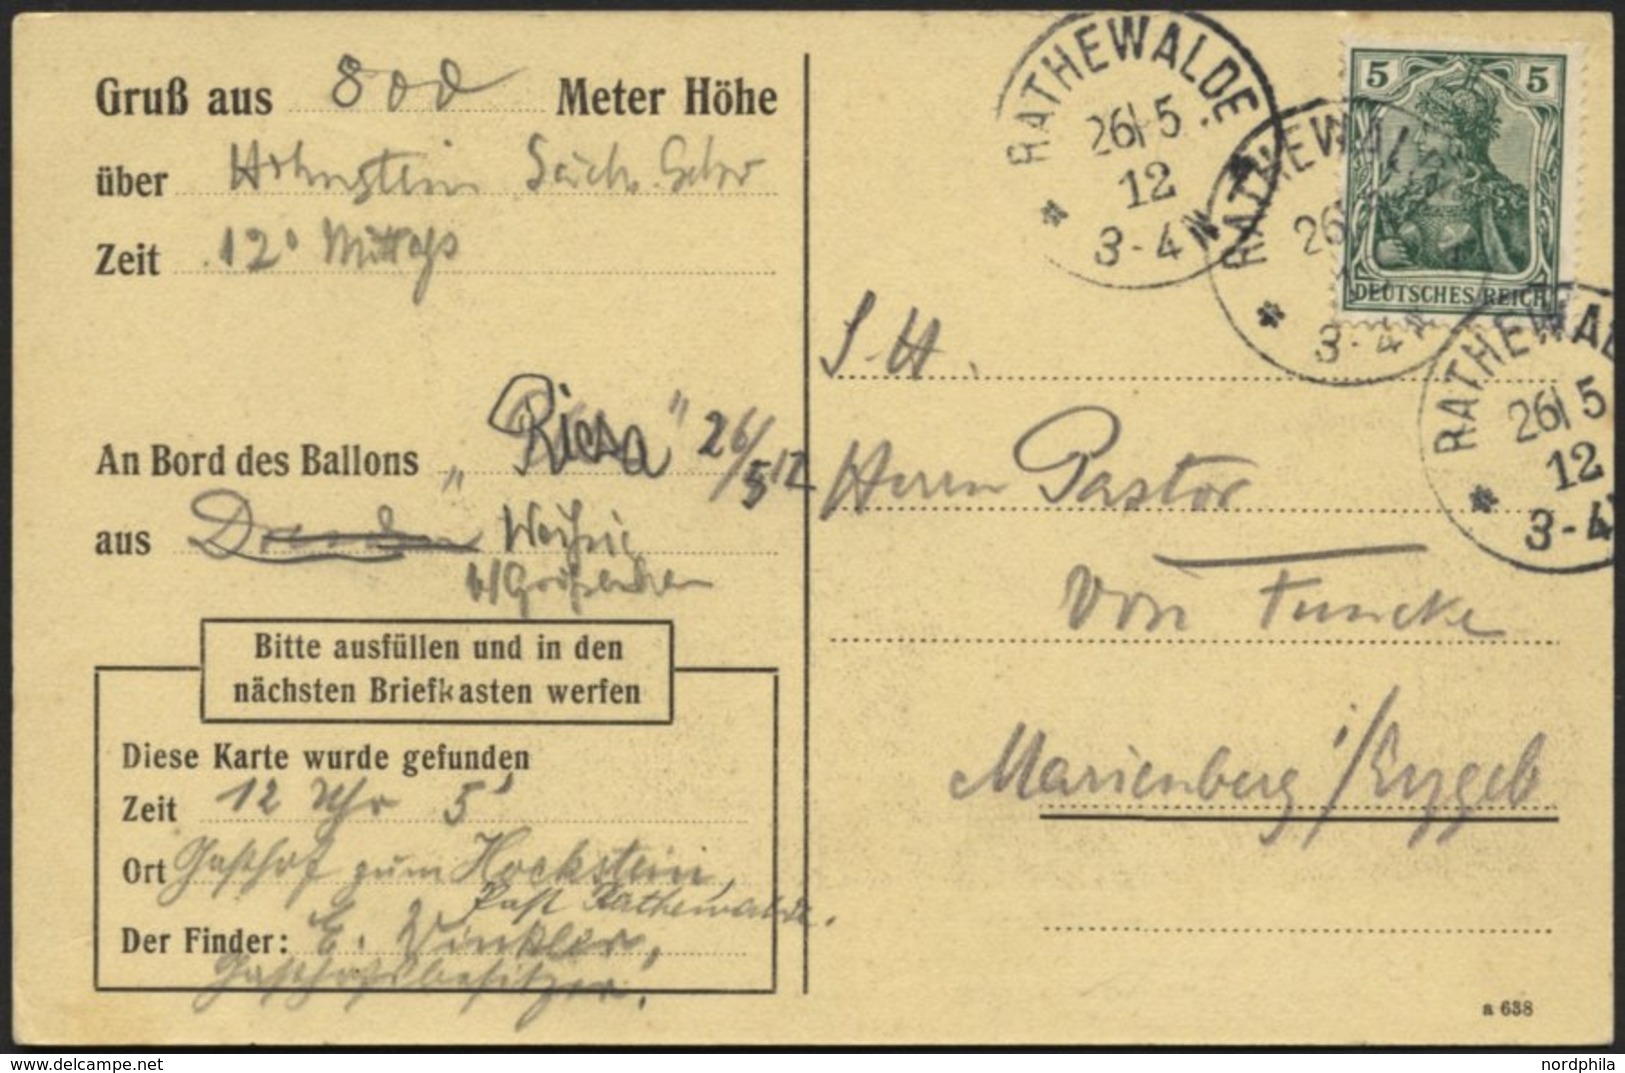 Gruß aus 800 Meter Höhe
über Hohnstein Sächs. Schw
Zeit 12° Mittags
An Bord des Ballons „Riesa" 26/5 12
aus Dresden Weißig
b/Großenhain
Bitte ausfüllen und in den
nächsten Briefkasten werfen
Diese Karte wurde gefunden
Zeit 12 Uhr 5'
Ort Gasthof zum Hockstein,
Post Rathewalde.
Der Finder: E. Winkler,
Gasthofsbesitzer.
RATHEWALDE
26/5
12
3-4N
RATHEWALDE
26
3-4N
5 5
DEUTSCHES REICH
RATHEWAL
26/5
12
3-4
S. H.
Herrn Pastor
von Funcke
Marienberg i/Erzgeb
a 638
nordphila